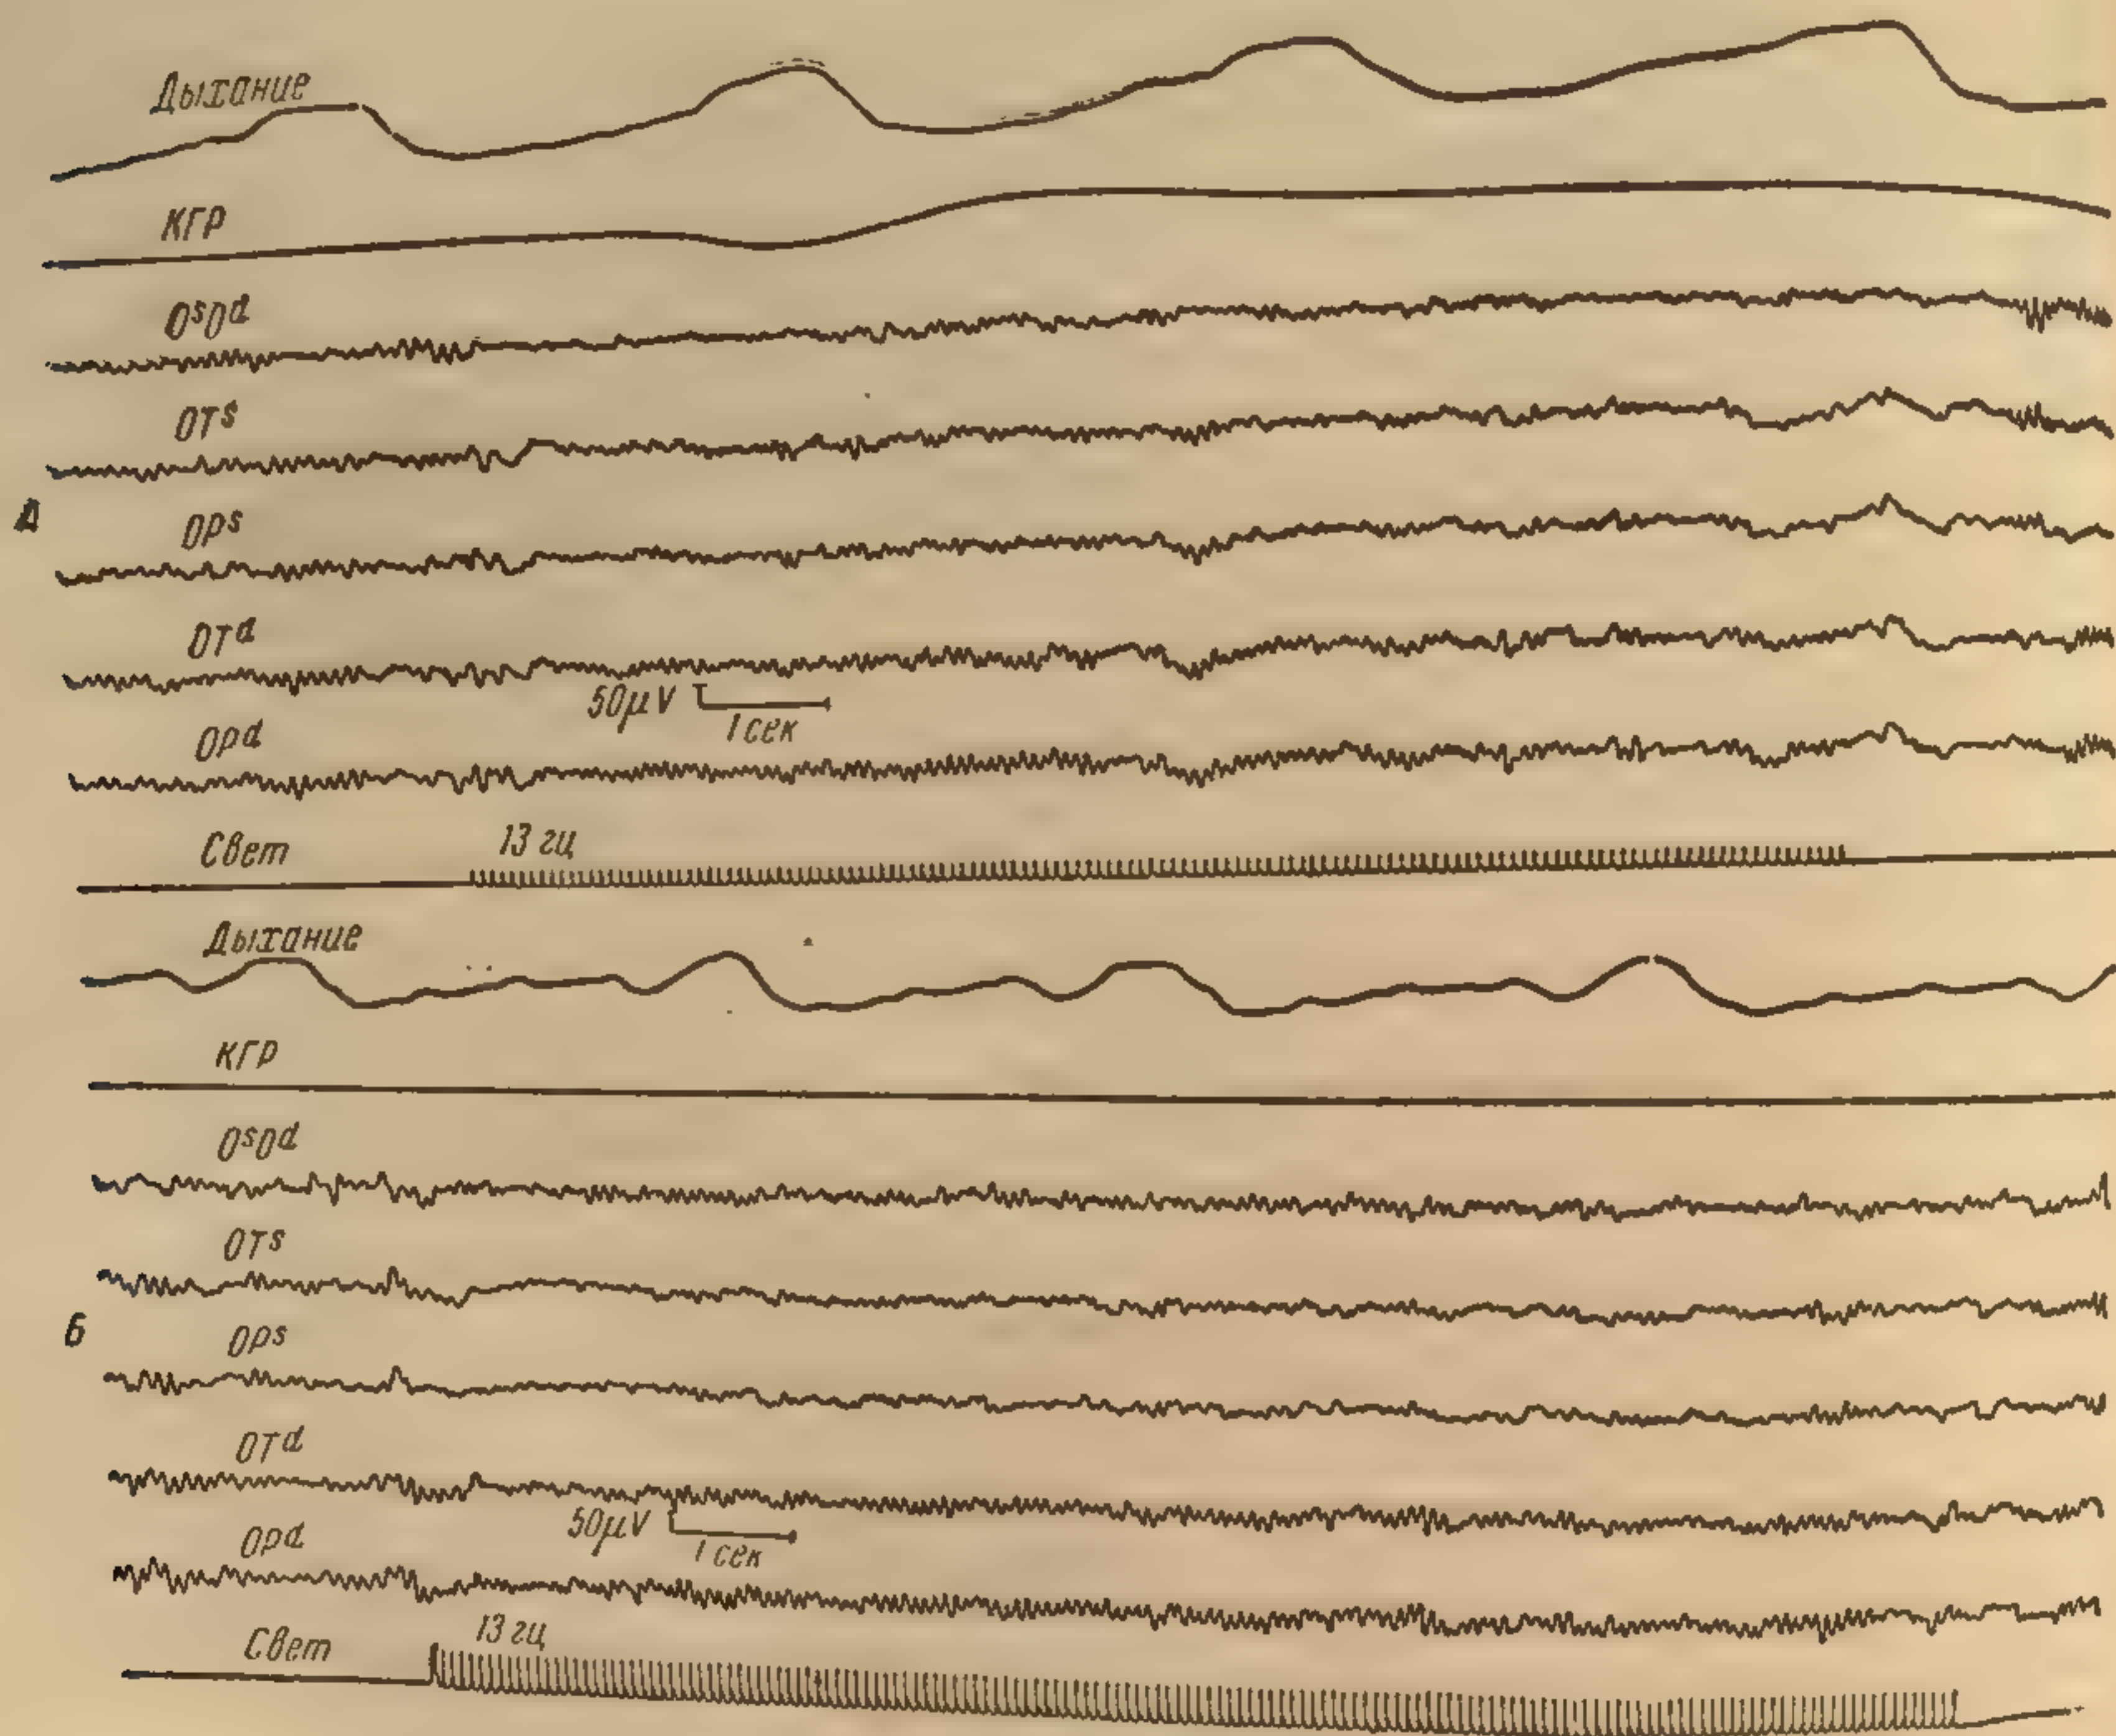 Дыхание
КГР
OˢOᵈ
OTˢ
А
OPˢ
OTᵈ
50μV
1 сек
OPᵈ
Свет
13 гц
Дыхание
КГР
OˢOᵈ
OTˢ
Б
OPˢ
OTᵈ
50μV
1 сек
OPᵈ
Свет
13 гц